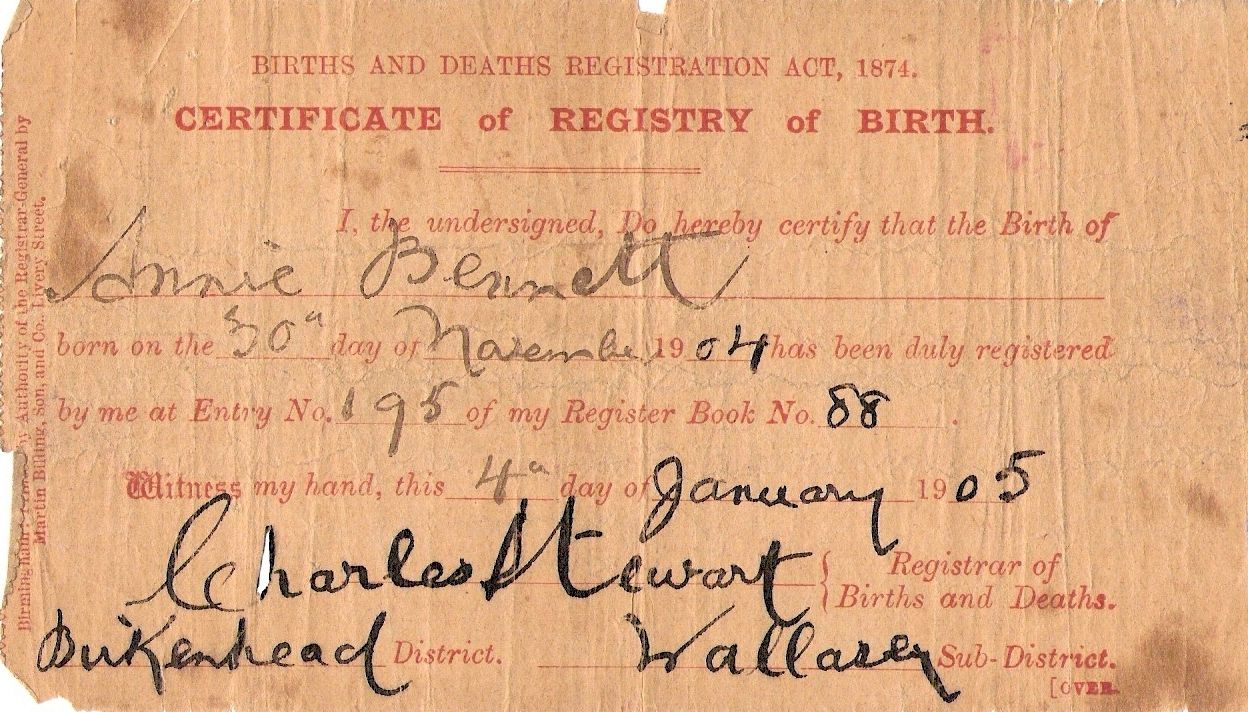 BIRTHS AND DEATHS REGISTRATION ACT, 1874.
CERTIFICATE of REGISTRY of BIRTH.
I, the undersigned, Do hereby certify that the Birth of
Annie Bennett
born on the 30th day of November 1904 has been duly registered
by me at Entry No. 195 of my Register Book No. 88.
Witness my hand, this 4th day of January 1905
Charles Stewart { Registrar of
Births and Deaths.
Birkenhead District. Wallasey Sub-District.
[OVER.
Birmingham: by Authority of the Registrar-General by
Martin Billing, Son, and Co., Livery Street.